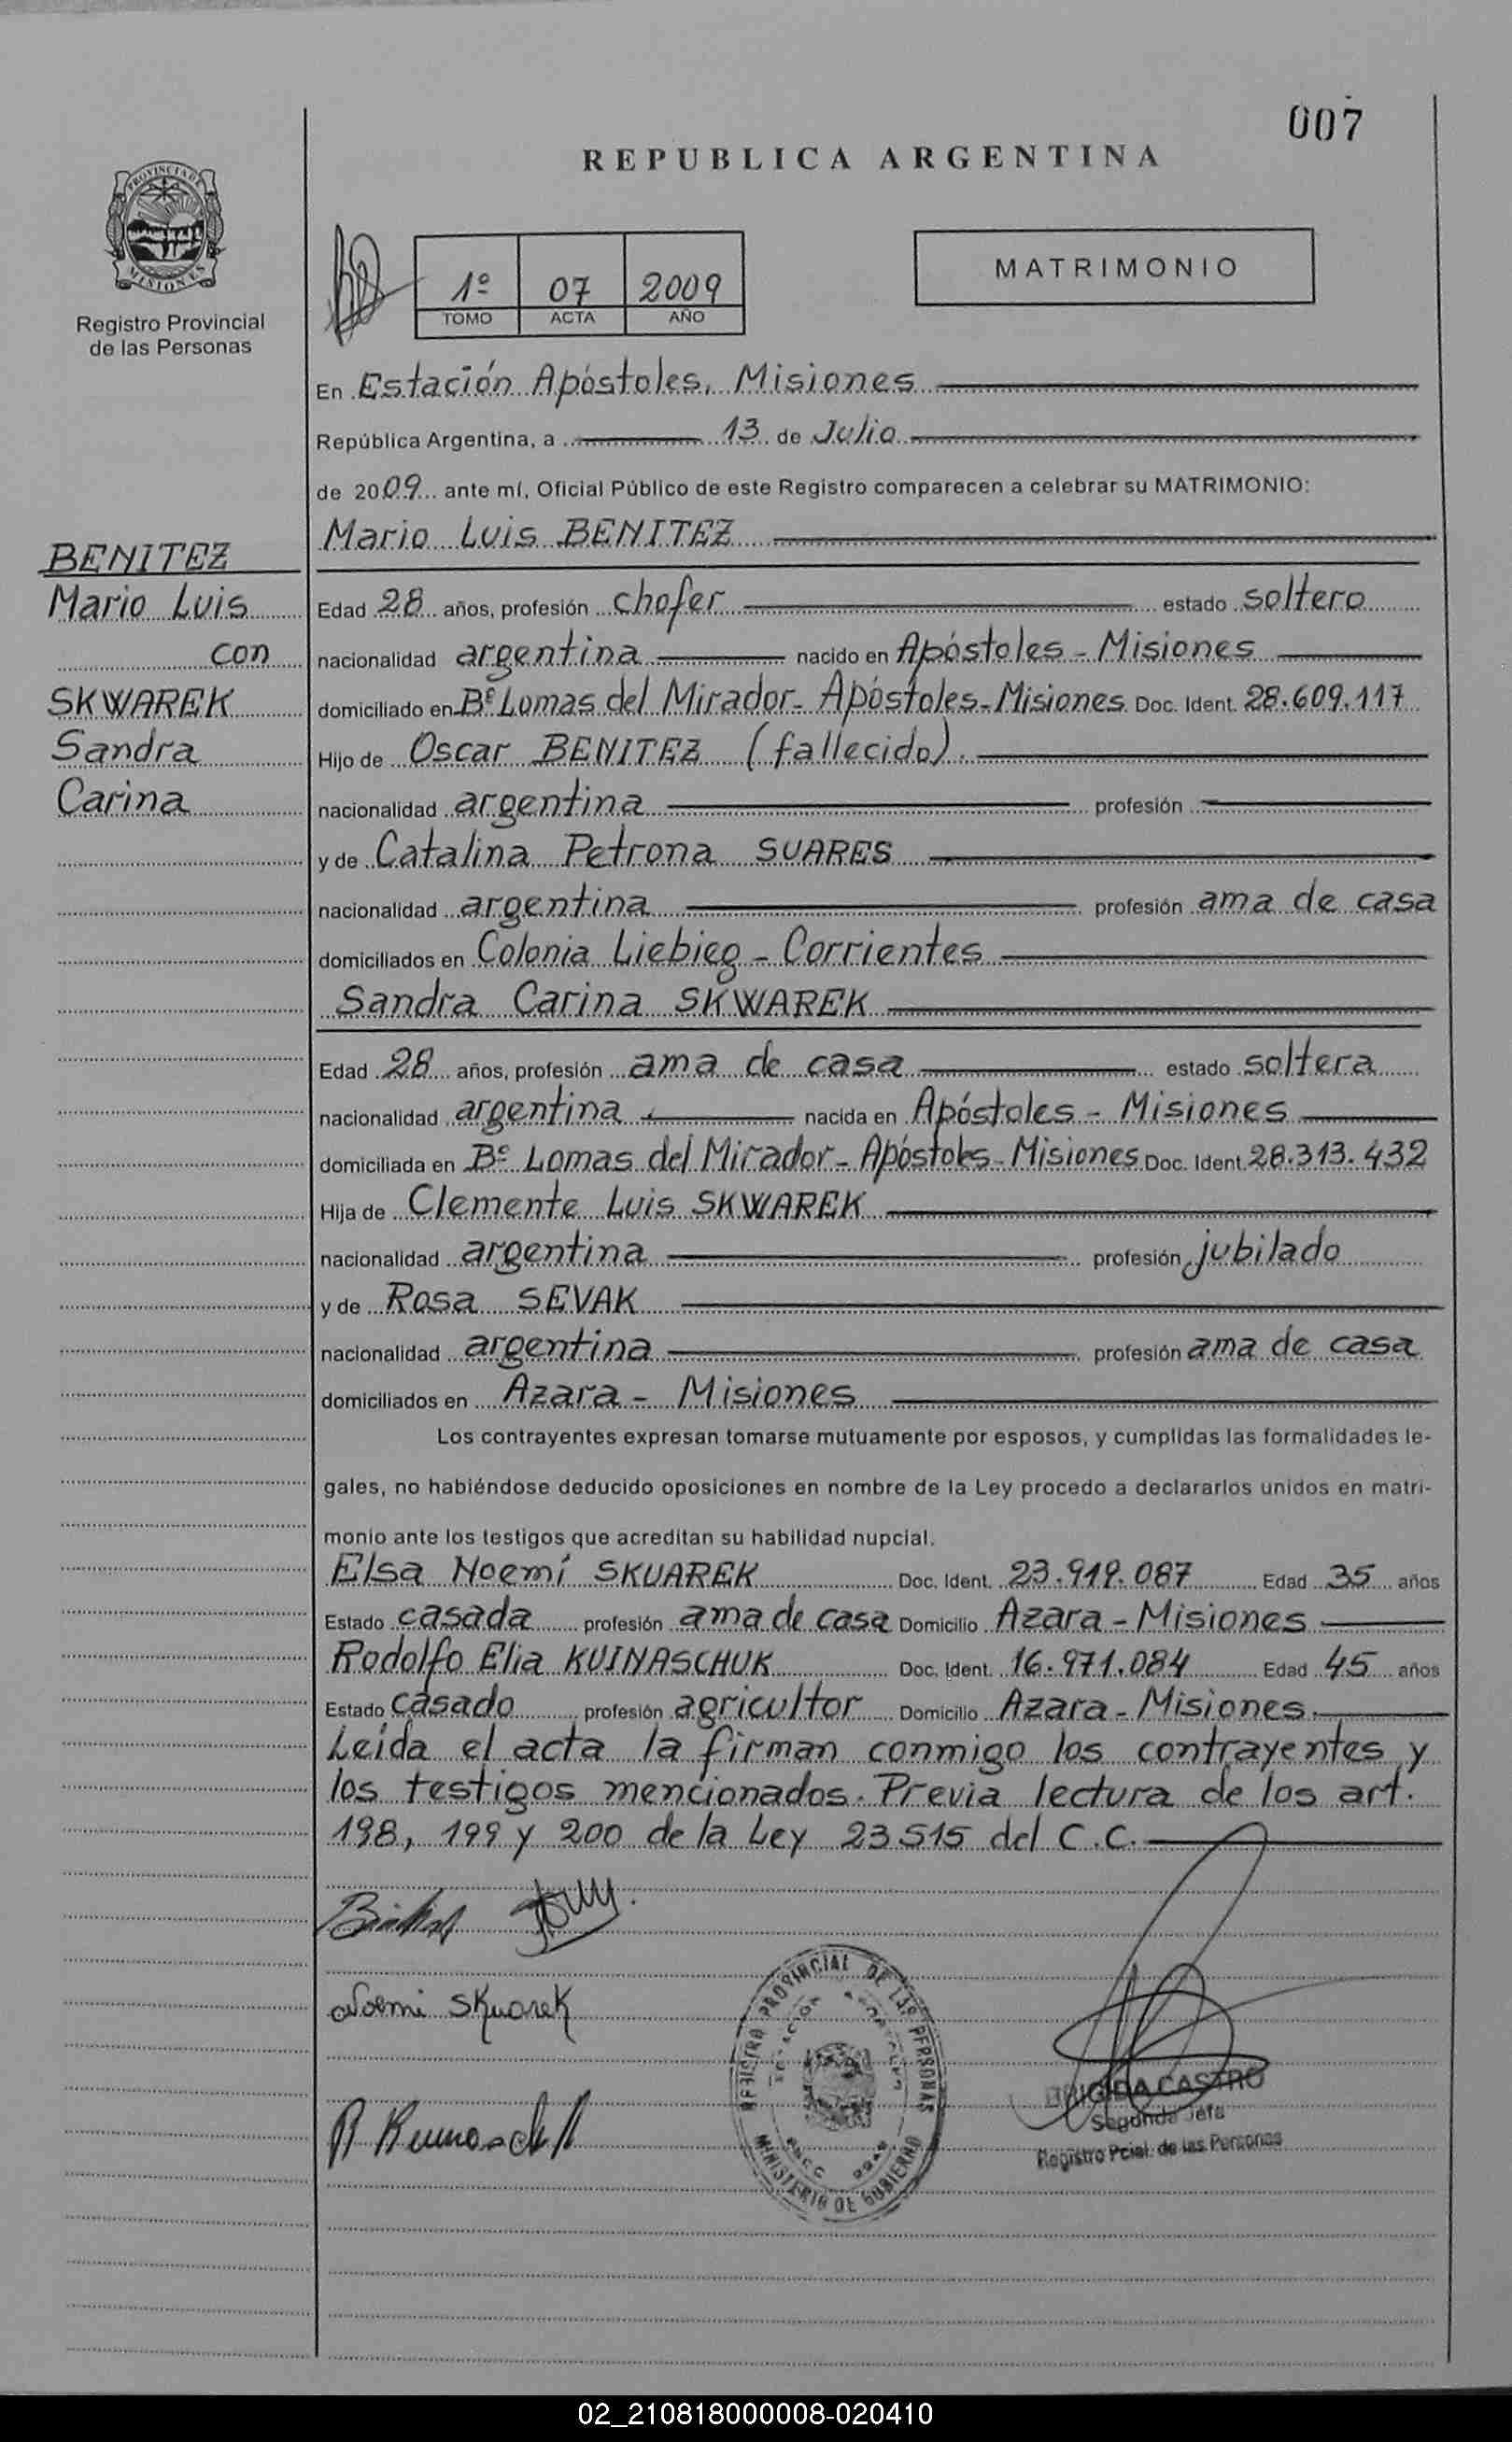 007
REPUBLICA ARGENTINA
PROVINCIA DE
MISIONES
Registro Provincial
de las Personas
1º 07 2009
TOMO ACTA AÑO
MATRIMONIO
En Estación Apóstoles, Misiones
República Argentina, a 13 de Julio
de 2009 ante mí, Oficial Público de este Registro comparecen a celebrar su MATRIMONIO:
Mario Luis BENITEZ
BENITEZ
Mario Luis
con
SKWAREK
Sandra
Carina
Edad 28 años, profesión chofer estado soltero
nacionalidad argentina nacido en Apóstoles - Misiones
domiciliado en Bº Lomas del Mirador - Apóstoles - Misiones Doc. Ident. 28.609.117
Hijo de Oscar BENITEZ (fallecido).
nacionalidad argentina profesión
y de Catalina Petrona SUARES
nacionalidad argentina profesión ama de casa
domiciliados en Colonia Liebieg - Corrientes
Sandra Carina SKWAREK
Edad 28 años, profesión ama de casa estado soltera
nacionalidad argentina nacida en Apóstoles - Misiones
domiciliada en Bº Lomas del Mirador - Apóstoles - Misiones Doc. Ident. 28.313.432
Hija de Clemente Luis SKWAREK
nacionalidad argentina profesión jubilado
y de Rosa SEVAK
nacionalidad argentina profesión ama de casa
domiciliados en Azara - Misiones
Los contrayentes expresan tomarse mutuamente por esposos, y cumplidas las formalidades le-
gales, no habiéndose deducido oposiciones en nombre de la Ley procedo a declararlos unidos en matri-
monio ante los testigos que acreditan su habilidad nupcial.
Elsa Noemí SKUAREK Doc. Ident. 23.919.087 Edad 35 años
Estado casada profesión ama de casa Domicilio Azara - Misiones
Rodolfo Elia KUINASCHUK Doc. Ident. 16.971.084 Edad 45 años
Estado casado profesión agricultor Domicilio Azara - Misiones.
Leída el acta la firman conmigo los contrayentes y
los testigos mencionados. Previa lectura de los art.
198, 199 y 200 de la Ley 23515 del C.C.
Noemi Skuarek
REGISTRO PROVINCIAL DE LAS PERSONAS
MINISTERIO DE GOBIERNO
BRIGIDA CASTRO
Segunda Jefa
Registro Pcial. de las Personas
02_210818000008-020410